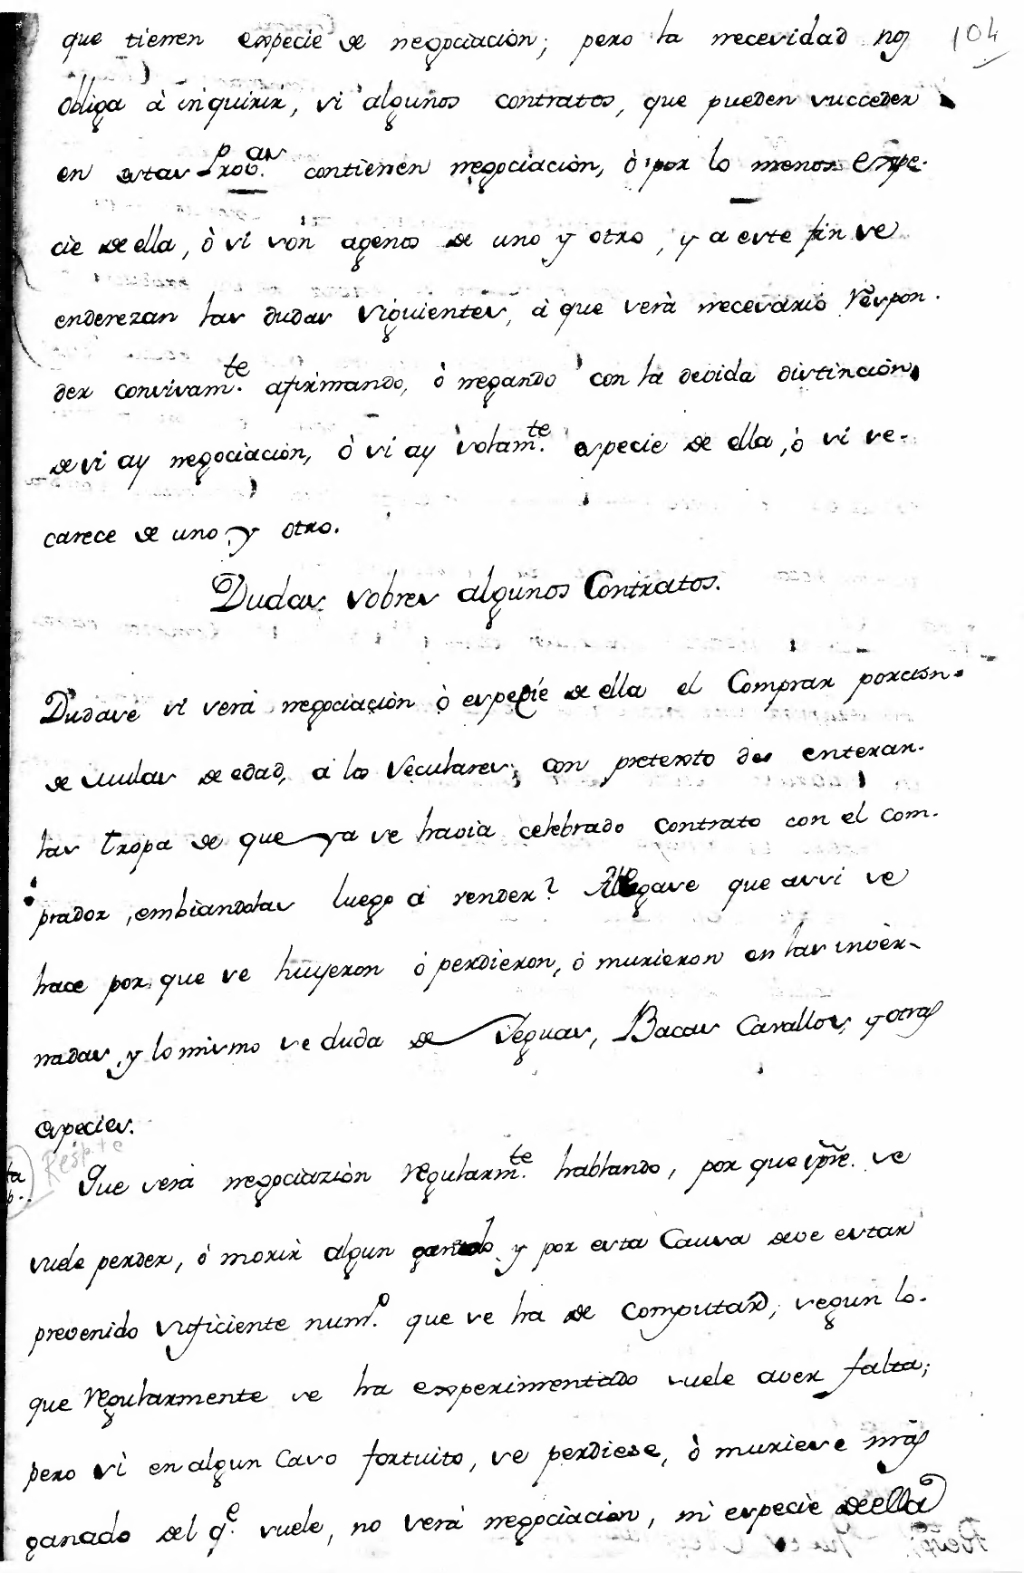 que tienen especie de negociaciòn; pero la necesidad nos 104
obliga à inquirir, si algunos contratos, que pueden succeder
en estas Prov.as contienen negociaciòn, ò por lo menos espe-
cie de ella, ò si son agenos de uno y otro, y a este fin se
enderezan las dudas siguientes, à que serà necesario respon-
der concisam.te afirmando, ò negando con la devida distinciòn
de si ay negociaciòn, ò si ay solam.te especie de ella, ò si se
carece de uno y otro.
Dudas sobres algunos Contratos.
Dudase si serà negociaciòn ò especie de ella el Comprar porciòn
de Mulas de edad, à los Seculares; con pretexto de enterar
las tropa de que ya se havia celebrado contrato con el com-
prador, embiandolas luego à vender? Alegase que assi se
hace por que se huyeron ò perdieron, ò murieron en las inver-
nadas, y lo mismo se duda de Yeguas, Bacas Cavallos, y otras
especies.
ta
Resp.te
Que serà negociaziòn regularm.te hablando, por que spre. se
suele perder, ò morir algun ganado, y por esta Causa deve estar
prevenido suficiente num.o que se ha de computar, segun lo
que regularmente se ha experimentado suele aver falta;
pero si en algun Caso fortuito, se perdiese, ò muriese màs
ganado del q.e suele, no serà negociaciòn, ni especie de ella